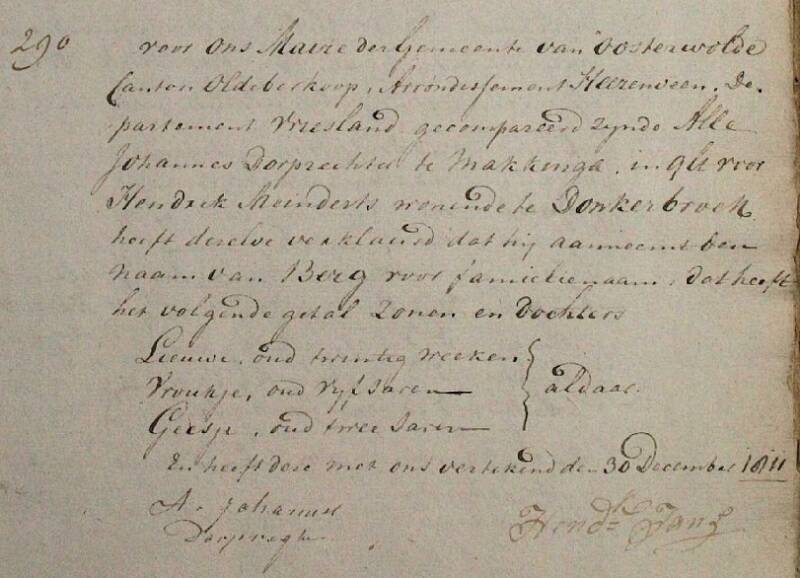 290 voor ons Maire der Gemeente van Oosterwolde
Canton Oldeberkoop, Arrondissement Heerenveen, De-
partement Vriesland gecompareerd zynde Alle
Johannes Dorprechter te Makkinga, in qlt voor
Hendrik Meinderts wonende te Donkerbroek
heeft deselve verklaard dat hij aanneemt den
Naam van Berg voor familienaam, dat heeft
het volgende getal Zonen en Dochters
Lieuwe, oud twintig weeken
Vroukje, oud Vyf Jaren
Geesje, oud twee Jaren
aldaar.
En heeft dese met ons vertekend den 30 December 1811
A. Johannes
Dorpregter
Hendk Jans